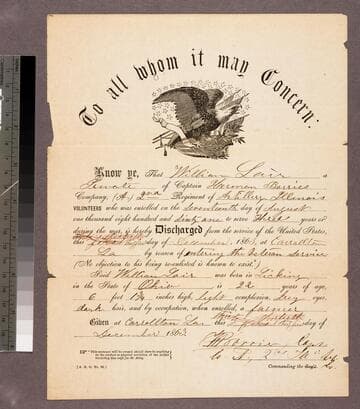 To all whom it may Concern:
Know ye, That William Lair a
Private of Captain Herman Borries
Company, (A,) 2nd Regiment of Artillery Illinois
VOLUNTEERS who was enrolled on the Seventeenth day of August
one thousand eight hundred and Sixty one to serve Three years or
during the war, is hereby Discharged from the service of the United States,
this day of December, 1863, at Carrollton
La by reason of entering the Veteran Service
(No objection to his being re-enlisted is known to exist.)
Said William Lair was born in Licking
in the State of Ohio is 22 years of age,
6 feet inches high, Light complexion, Grey eyes,
dark hair, and by occupation, when enrolled, a farmer
Given at Carrollton Lou this day of
December 1863.
Capt
Commanding the
[A. G. O. No. 99.]